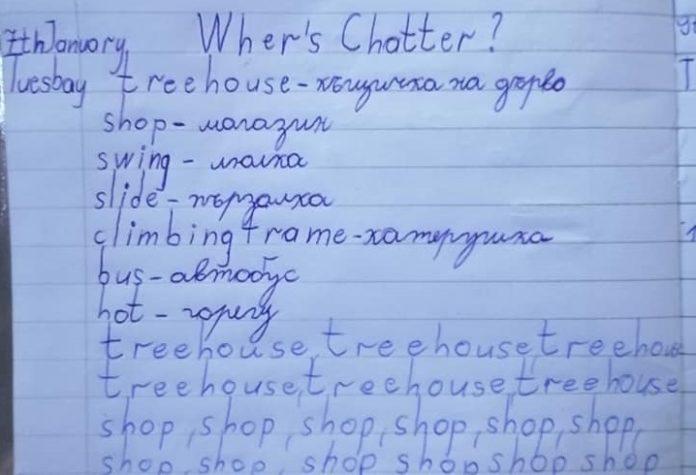 7th January, Wher's Chatter?
Tuesbay treehouse-къщичка на дърво
shop-магазин
swing - люлка
slide-пързалка
climbing frame-катерушка
bus-автобус
hot - горещ
treehouse, treehouse, treehouse
treehouse, treehouse, treehouse
shop, shop, shop, shop, shop, shop,
shop, shop, shop shop shop shop